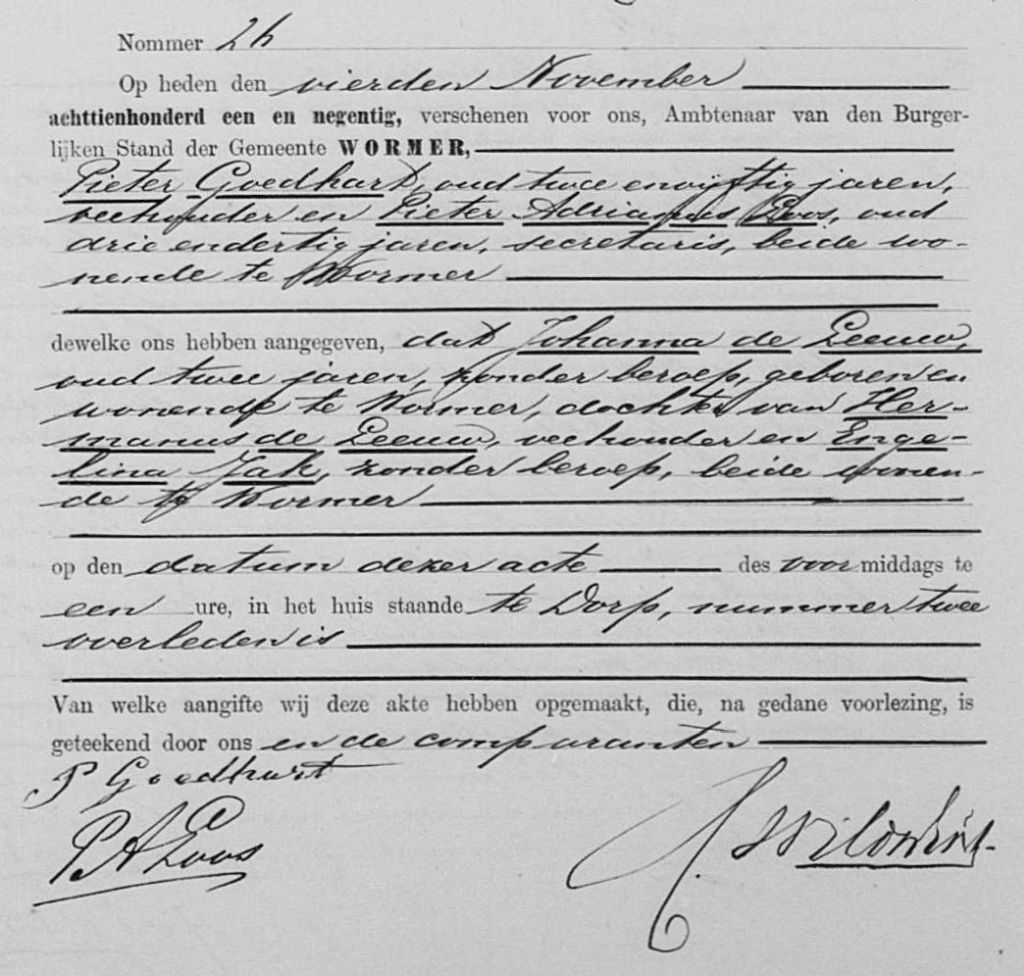 Nommer 26
Op heden den vierden November
achttienhonderd een en negentig, verschenen voor ons, Ambtenaar van den Burger-
lijken Stand der Gemeente WORMER,
Pieter Goedhart, oud twee en vijftig jaren,
veehouder en Pieter Adrianus Loos, oud
drie endertig jaren, secretaris, beide wo-
nende te Wormer
dewelke ons hebben aangegeven, dat Johanna de Leeuw,
oud twee jaren, zonder beroep, geboren en
wonende te Wormer, dochter van Her-
manus de Leeuw, veehouder en Enge-
lina Jak, zonder beroep, beide wonen-
de te Wormer
op den datum dezer acte des voor middags te
een ure, in het huis staande te Dorp, nummer twee
overleden is
Van welke aangifte wij deze akte hebben opgemaakt, die, na gedane voorlezing, is
geteekend door ons en de comparanten
P Goedhart
P A Loos